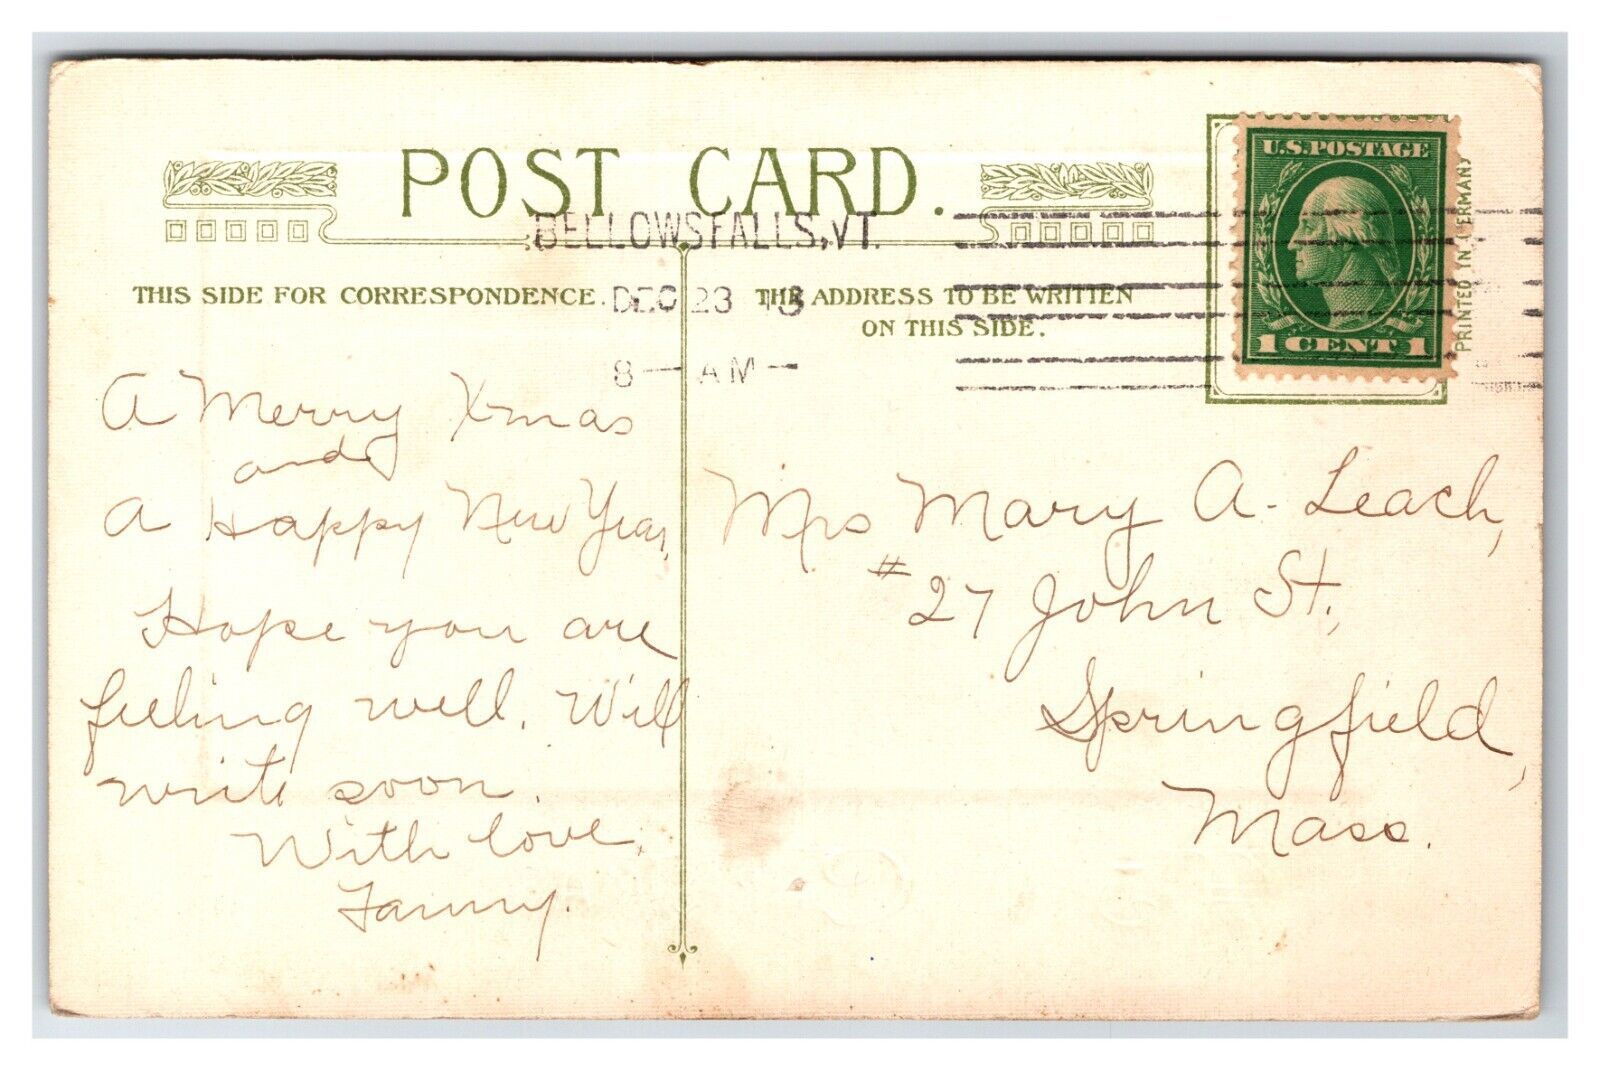 POST CARD.
BELLOWS FALLS, VT.
DEC 23
8 — AM —
THIS SIDE FOR CORRESPONDENCE.
THE ADDRESS TO BE WRITTEN
ON THIS SIDE.
U.S. POSTAGE
1 CENT 1
PRINTED IN GERMANY
A Merry Xmas
and
A Happy New Year,
Hope you are
feeling well. Will
write soon.
With love,
Fanny.
Mrs Mary A. Leach,
#27 John St.,
Springfield,
Mass.